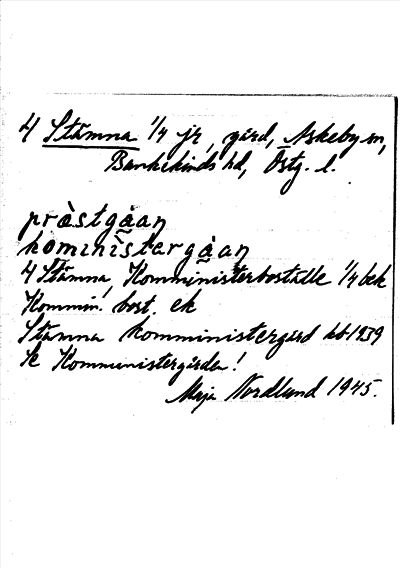 4 Stämna 1/4 jr, gård, Askeby sn,
Bankekinds hd, Östg. l.
pràstgåan
kominìstərgåan
4 Stämna, Komministerboställe 1/4 bek
Kommin. bost. ek
Stämna komministergård kb 1939
K Kommunistergården!
Maja Nordlund 1945.